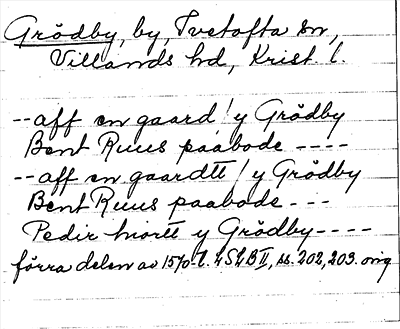 Grödby, by, Ivetofta sn,
Villands hd, Krist. l.
--aff en gaard / y Grödby
Bent Ruus paabode ----
--aff en gaardtt / y Grödby
Bent Ruus paabode ---
Pedir hiortt y Grödby----
förra delen av 1570-t. LSLB II, ss. 202, 203. orig